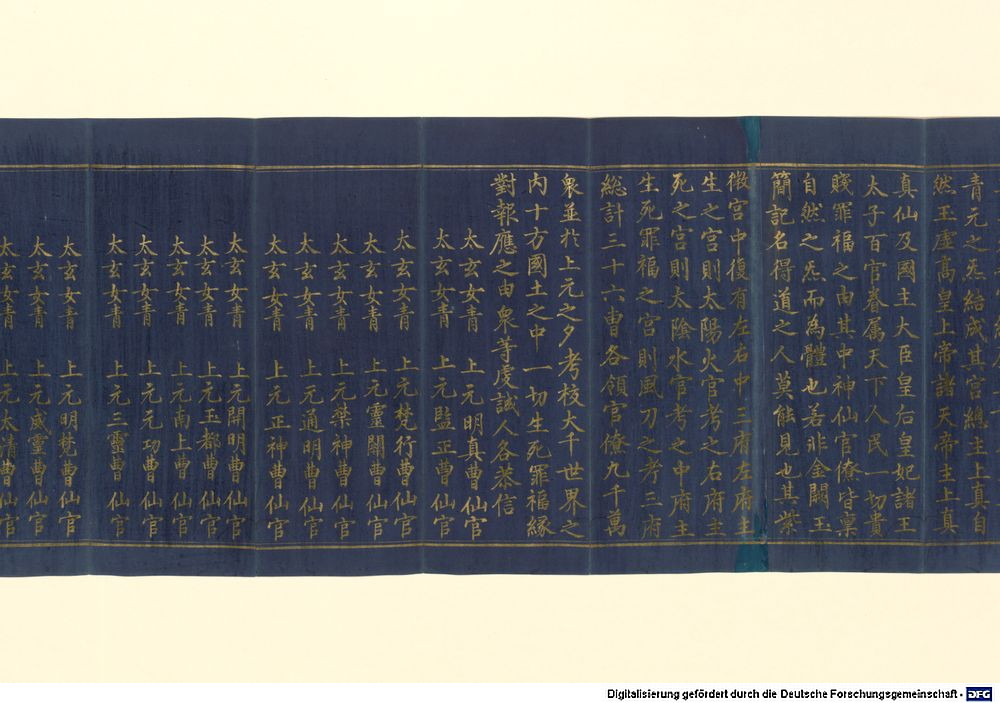 青元之炁結成其宮總主上真自
然玉虛高皇上帝諸天帝主上真
真仙及國主大臣皇后皇妃諸王
太子百官眷属天下人民一切貴
賤罪福之由其中神仙官僚皆禀
自然之炁而為體也若非金闕玉
簡記名得道之人莫能見也其紫
微宮中復有左右中三府左府主
生之宮則太陽火官考之右府主
死之宮則太陰水官考之中府主
生死罪福之宮則風刀之考三府
総計三十六曹各領官僚九千萬
衆並於上元之夕考校大千世界之
内十方國土之中一切生死罪福緣
對報應之由衆等虔誠人各恭信
太玄女青 上元明真曹仙官
太玄女青 上元監正曹仙官
太玄女青 上元梵行曹仙官
太玄女青 上元靈關曹仙官
太玄女青 上元禁神曹仙官
太玄女青 上元通明曹仙官
太玄女青 上元正神曹仙官
太玄女青 上元開明曹仙官
太玄女青 上元玉都曹仙官
太玄女青 上元南上曹仙官
太玄女青 上元元功曹仙官
太玄女青 上元三靈曹仙官
太玄女青 上元明梵曹仙官
太玄女青 上元威靈曹仙官
太玄女青 上元太清曹仙官
Digitalisierung gefördert durch die Deutsche Forschungsgemeinschaft - DFG